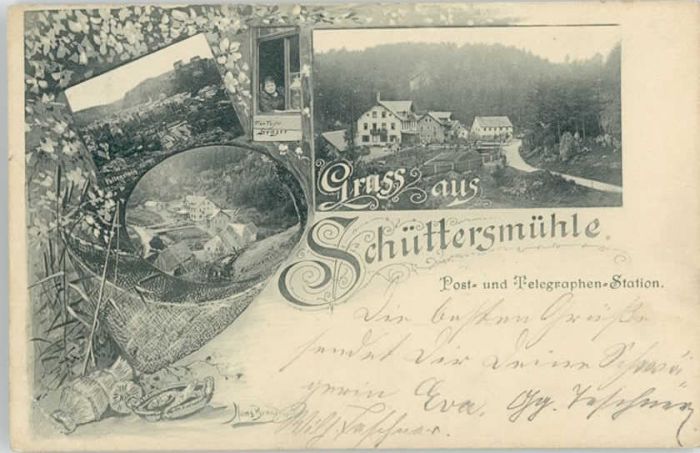 Gruss aus
Schüttersmühle.
Post- und Telegraphen-Station.
Die besten Grüße
sendet Dir Deine Schwä-
gerin Eva. Gg. Teschner